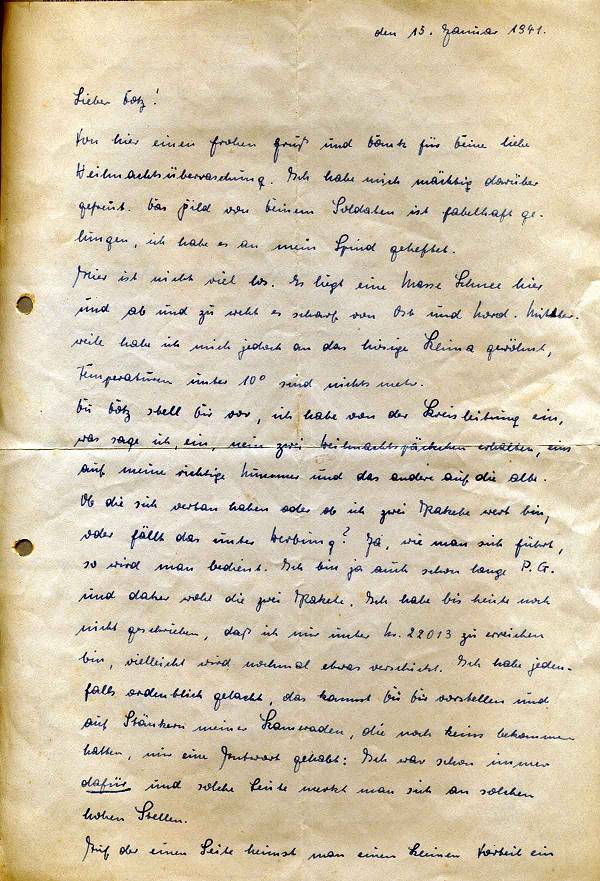 den 13. Januar 1941.
Lieber Götz!
Von hier einen frohen Gruß und Dank für Deine liebe
Weihnachtsüberraschung. Ich habe mich mächtig darüber
gefreut. Das Bild von Deinem Soldaten ist fabelhaft ge-
lungen, ich habe es an mein Spind geheftet.
Hier ist nicht viel los. Es liegt eine Masse Schnee hier
und ab und zu weht es scharf von Ost und Nord. Mittler-
weile habe ich mich jedoch an das hiesige Klima gewöhnt,
Temperaturen unter 10° sind nichts mehr.
Du Götz stell Dir vor, ich habe von der Kreisleitung ein,
was sage ich, ein, nein zwei Weihnachtspäckchen erhalten, eins
auf meine richtige Nummer und das andere auf die alte.
Ob die sich vertan haben oder ob ich zwei Pakete wert bin,
oder fällt das unter Werbung? Ja, wie man sich führt,
so wird man bedient. Ich bin ja auch schon lange P.G.
und daher wohl die zwei Pakete. Ich habe bis heute noch
nicht geschrieben, daß ich nur unter Nr. 22013 zu erreichen
bin, vielleicht wird nochmal etwas verschickt. Ich habe jeden-
falls ordentlich gelacht, das kannst Du Dir vorstellen und
auf Stänkern meiner Kameraden, die noch keins bekommen
hatten, nur eine Antwort gehabt: Ich war schon immer
dafür und solche Leute merkt man sich an solchen
hohen Stellen.
Auf der einen Seite heimst man einen kleinen Vorteil ein